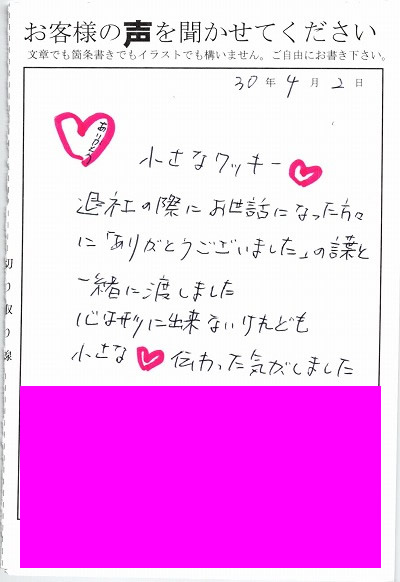 お客様の声を聞かせてください
文章でも箇条書きでもイラストでも構いません。ご自由にお書き下さい。
30年4月2日
ありがとう
小さなクッキー
退社の際にお世話になった方々
に「ありがとうございました」の言葉と
一緒に渡しました
心はザツに出来ないけれども
小さな 伝わった気がしました
切り取り線